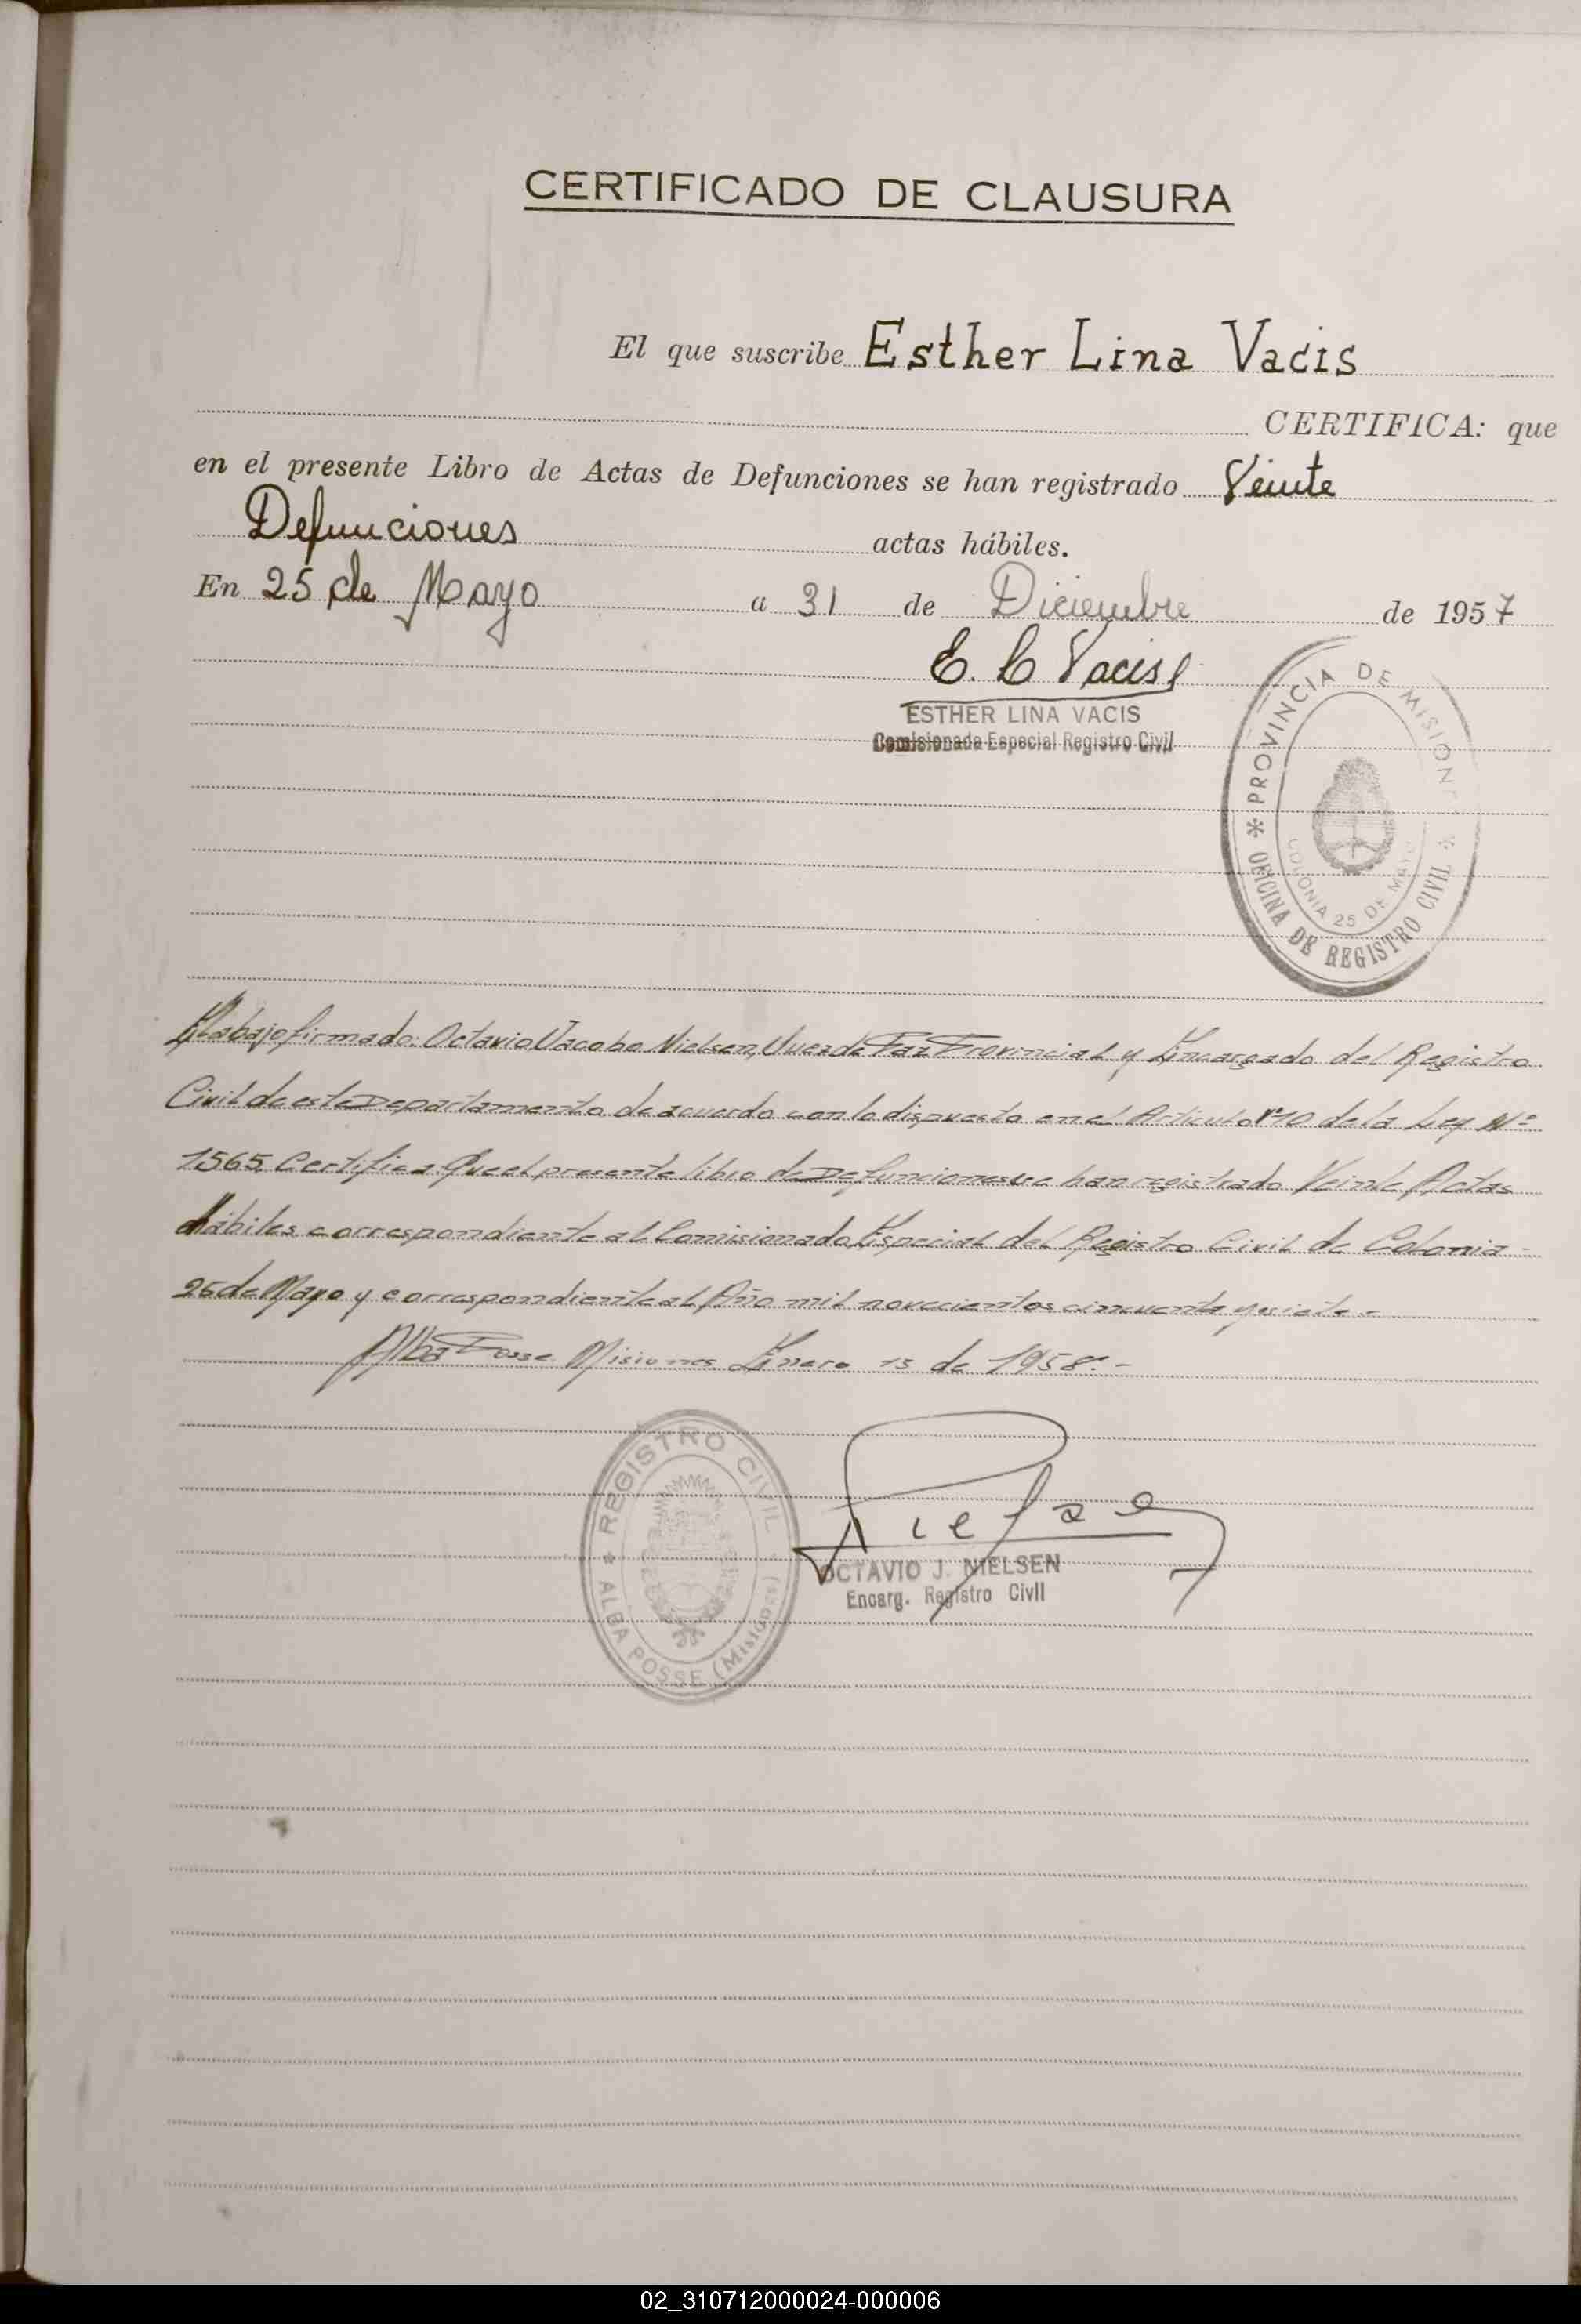 CERTIFICADO DE CLAUSURA
El que suscribe Esther Lina Vacis
CERTIFICA: que
en el presente Libro de Actas de Defunciones se han registrado Veinte
Defunciones actas hábiles.
En 25 de Mayo a 31 de Diciembre de 1957
E. L Vacis
ESTHER LINA VACIS
Comisionada Especial Registro Civil
PROVINCIA DE MISIONES
COLONIA 25 DE MAYO
OFICINA DE REGISTRO CIVIL
El abajo firmado: Octavio Jacobo Nielsen, Juez de Paz Provincial y Encargado del Registro
Civil de este Departamento de acuerdo con lo dispuesto en el Articulo nº10 de la Ley Nº
1565, Certifica Que el presente libro de Defunciones se han registrado Veinte Actas
Hábiles correspondiente al Comisionado Especial del Registro Civil de Colonia -
25 de Mayo y correspondiente al Año mil novecientos cincuenta y siete.-
Alba Posse Misiones Enero 15 de 1958.-
REGISTRO CIVIL
ALBA POSSE (Misiones)
OCTAVIO J. NIELSEN
Encarg. Registro Civil
02_310712000024-000006